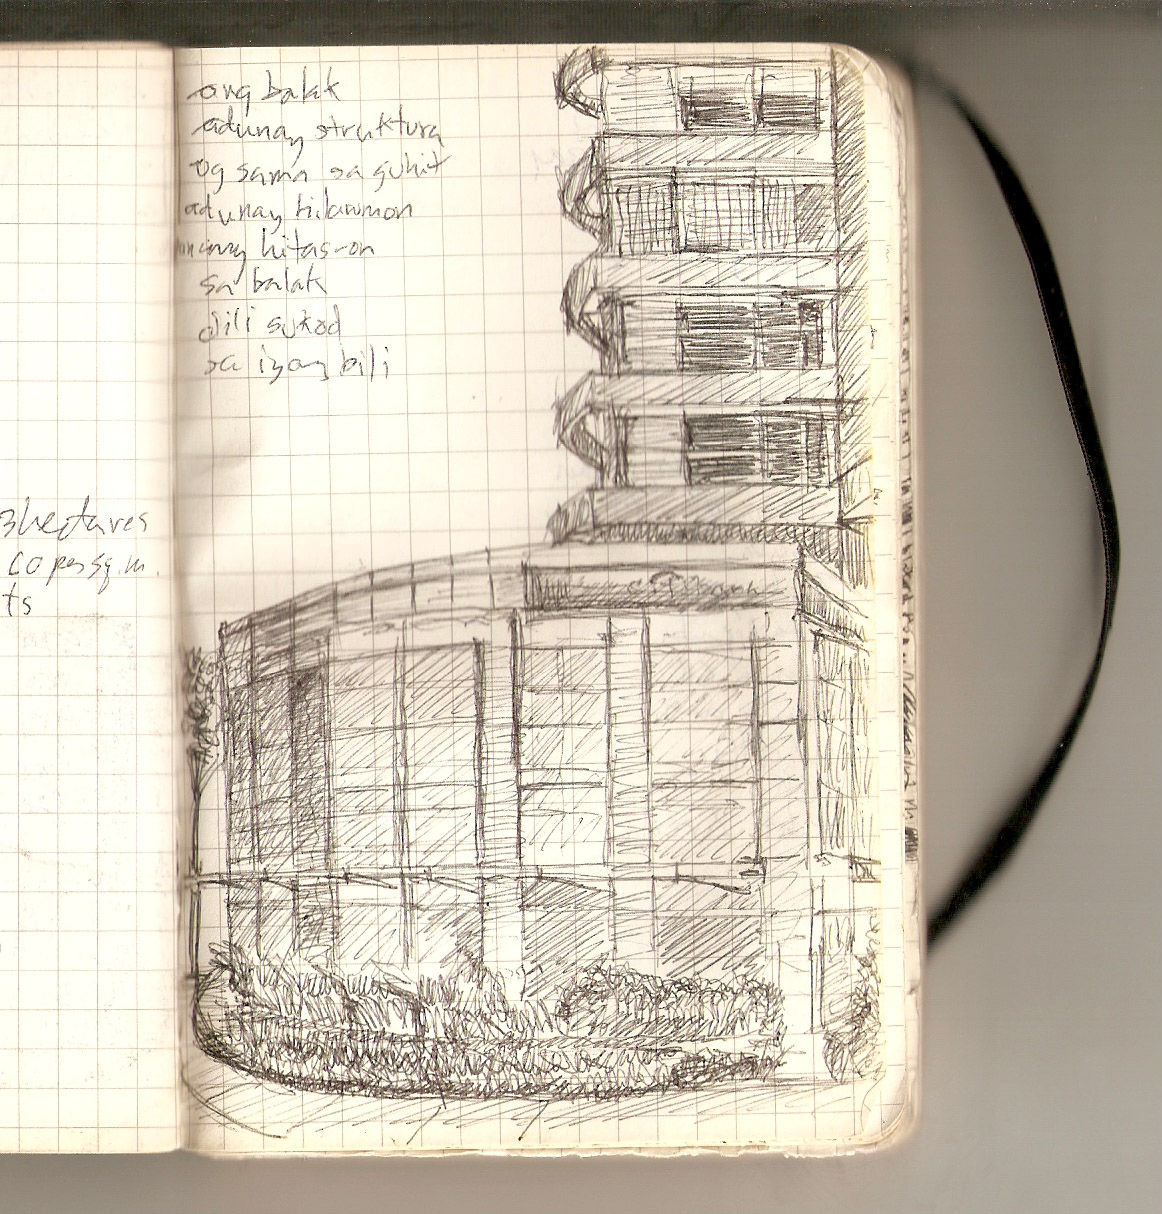 3hectares
co per sq.m.
ts
ang balak
adunay struktura
og sama sa guhit
adunay hilawmon
hitas-on
sa balak
dili sukod
sa iyang bili